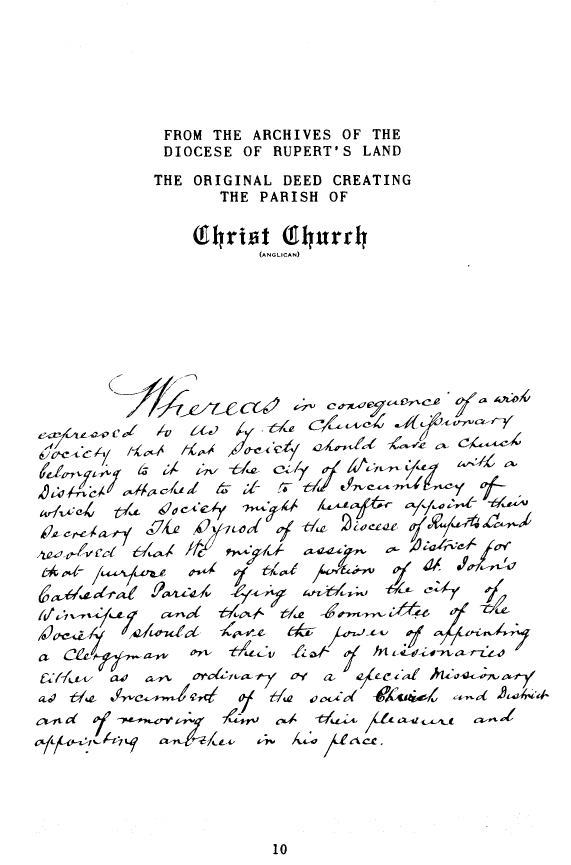 FROM THE ARCHIVES OF THE
DIOCESE OF RUPERT'S LAND
THE ORIGINAL DEED CREATING
THE PARISH OF
Christ Church
(ANGLICAN)
Whereas in consequence of a wish
expressed to us by the Church Missionary
Society that that Society should have a Church
belonging to it in the City of Winnipeg with a
District attached to it to the Incumbency of
which the Society might hereafter appoint their
Secretary The Synod of the Diocese of Ruperts Land
resolved that We might assign a District for
that purpose out of that portion of St. John's
Cathedral Parish lying within the city of
Winnipeg and that the Committee of the
Society should have the power of appointing
a Clergyman on their list of Missionaries
Either as an ordinary or a special Missionary
as the Incumbent of the said Church and District
and of removing him at their pleasure and
appointing another in his place.
10